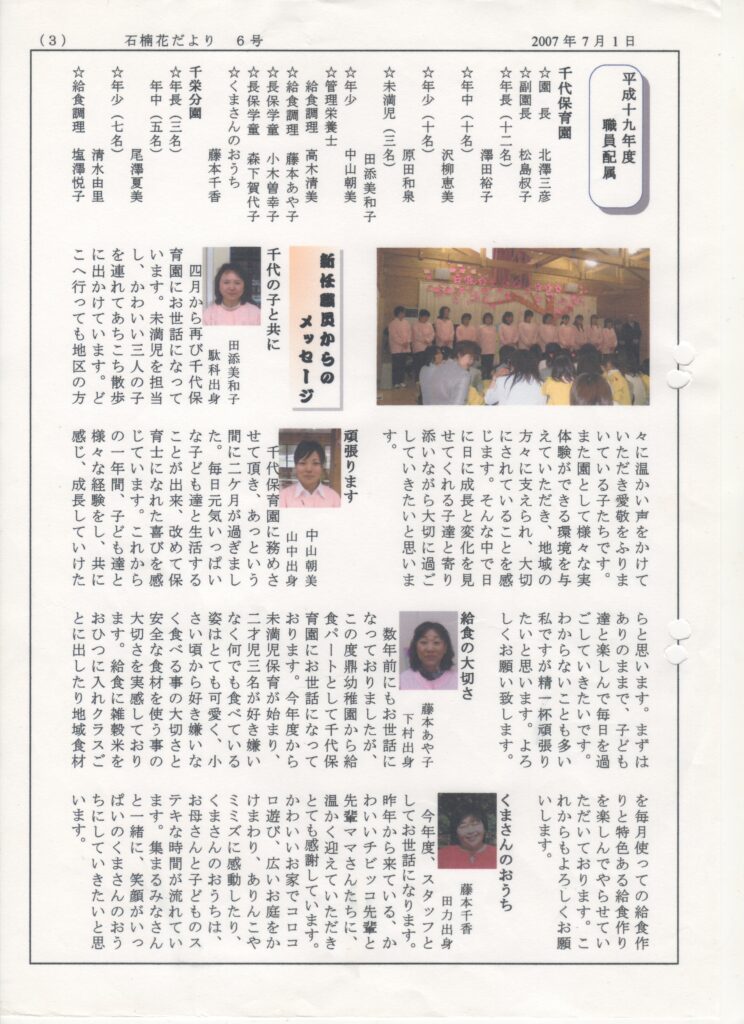 (3)
石楠花だより 6号
2007年7月1日
平成十九年度
職員配属
千代保育園
☆園 長 北澤三彦
☆副園長 松島叔子
☆年長(十二名)
澤田裕子
☆年中(十名)
沢柳恵美
☆年少(十名)
原田和泉
☆未満児(三名)
田添美和子
☆年少 中山朝美
☆管理栄養士
給食調理 高木清美
☆給食調理 藤本あや子
☆長保学童 小木曽幸子
☆長保学童 森下賀代子
☆くまさんのおうち
藤本千香
千栄分園
☆年長(三名)
年中(五名)
尾澤夏美
☆年少(七名)
清水由里
☆給食調理 塩澤悦子
新任職員からの
メッセージ
千代の子と共に
田添美和子
駄科出身
四月から再び千代保
育園にお世話になって
います。未満児を担当
し、かわいい三人の子
を連れてあちこち散歩
に出かけています。ど
こへ行っても地区の方
々に温かい声をかけて
いただき愛敬をふりま
いている子たちです。
また園として様々な実
体験ができる環境を与
えていただき、地域の
方々に支えられ、大切
にされていることを感
じます。そんな中で日
に日に成長と変化を見
せてくれる子達と寄り
添いながら大切に過ご
していきたいと思いま
す。
頑張ります
中山朝美
山中出身
千代保育園に務めさ
せて頂き、あっという
間に二ケ月が過ぎまし
た。毎日元気いっぱい
な子ども達と生活する
ことが出来、改めて保
育士になれた喜びを感
じています。これから
の一年間、子ども達と
様々な経験をし、共に
感じ、成長していけた
らと思います。まずは
ありのままで、子ども
達と楽しんで毎日を過
ごしていきたいです。
わからないことも多い
私ですが精一杯頑張り
たいと思います。よろ
しくお願い致します。
給食の大切さ
藤本あや子
下村出身
数年前にもお世話に
なっておりましたが、
この度鼎幼稚園から給
食パートとして千代保
育園にお世話になって
おります。今年度から
未満児保育が始まり、
二才児三名が好き嫌い
なく何でも食べている
姿はとても可愛く、小
さい頃から好き嫌いな
く食べる事の大切さと
安全な食材を使う事の
大切さを実感しており
ます。給食に雑穀米を
おひつに入れクラスご
とに出したり地域食材
を毎月使っての給食作
りと特色ある給食作り
を楽しんでやらせてい
ただいております。こ
れからもよろしくお願
いします。
くまさんのおうち
藤本千香
田力出身
今年度、スタッフと
してお世話になります。
昨年から来ている、か
わいいチビッコ先輩と
先輩ママさんたちに、
温かく迎えていただき
とても感謝しています。
かわいいお家でコロコ
ロ遊び、広いお庭をか
けまわり、ありんこや
ミミズに感動したり、
くまさんのおうちは、
お母さんと子どものス
テキな時間が流れてい
ます。集まるみなさん
と一緒に、笑顔がいっ
ぱいのくまさんのおう
ちにしていきたいと思
います。